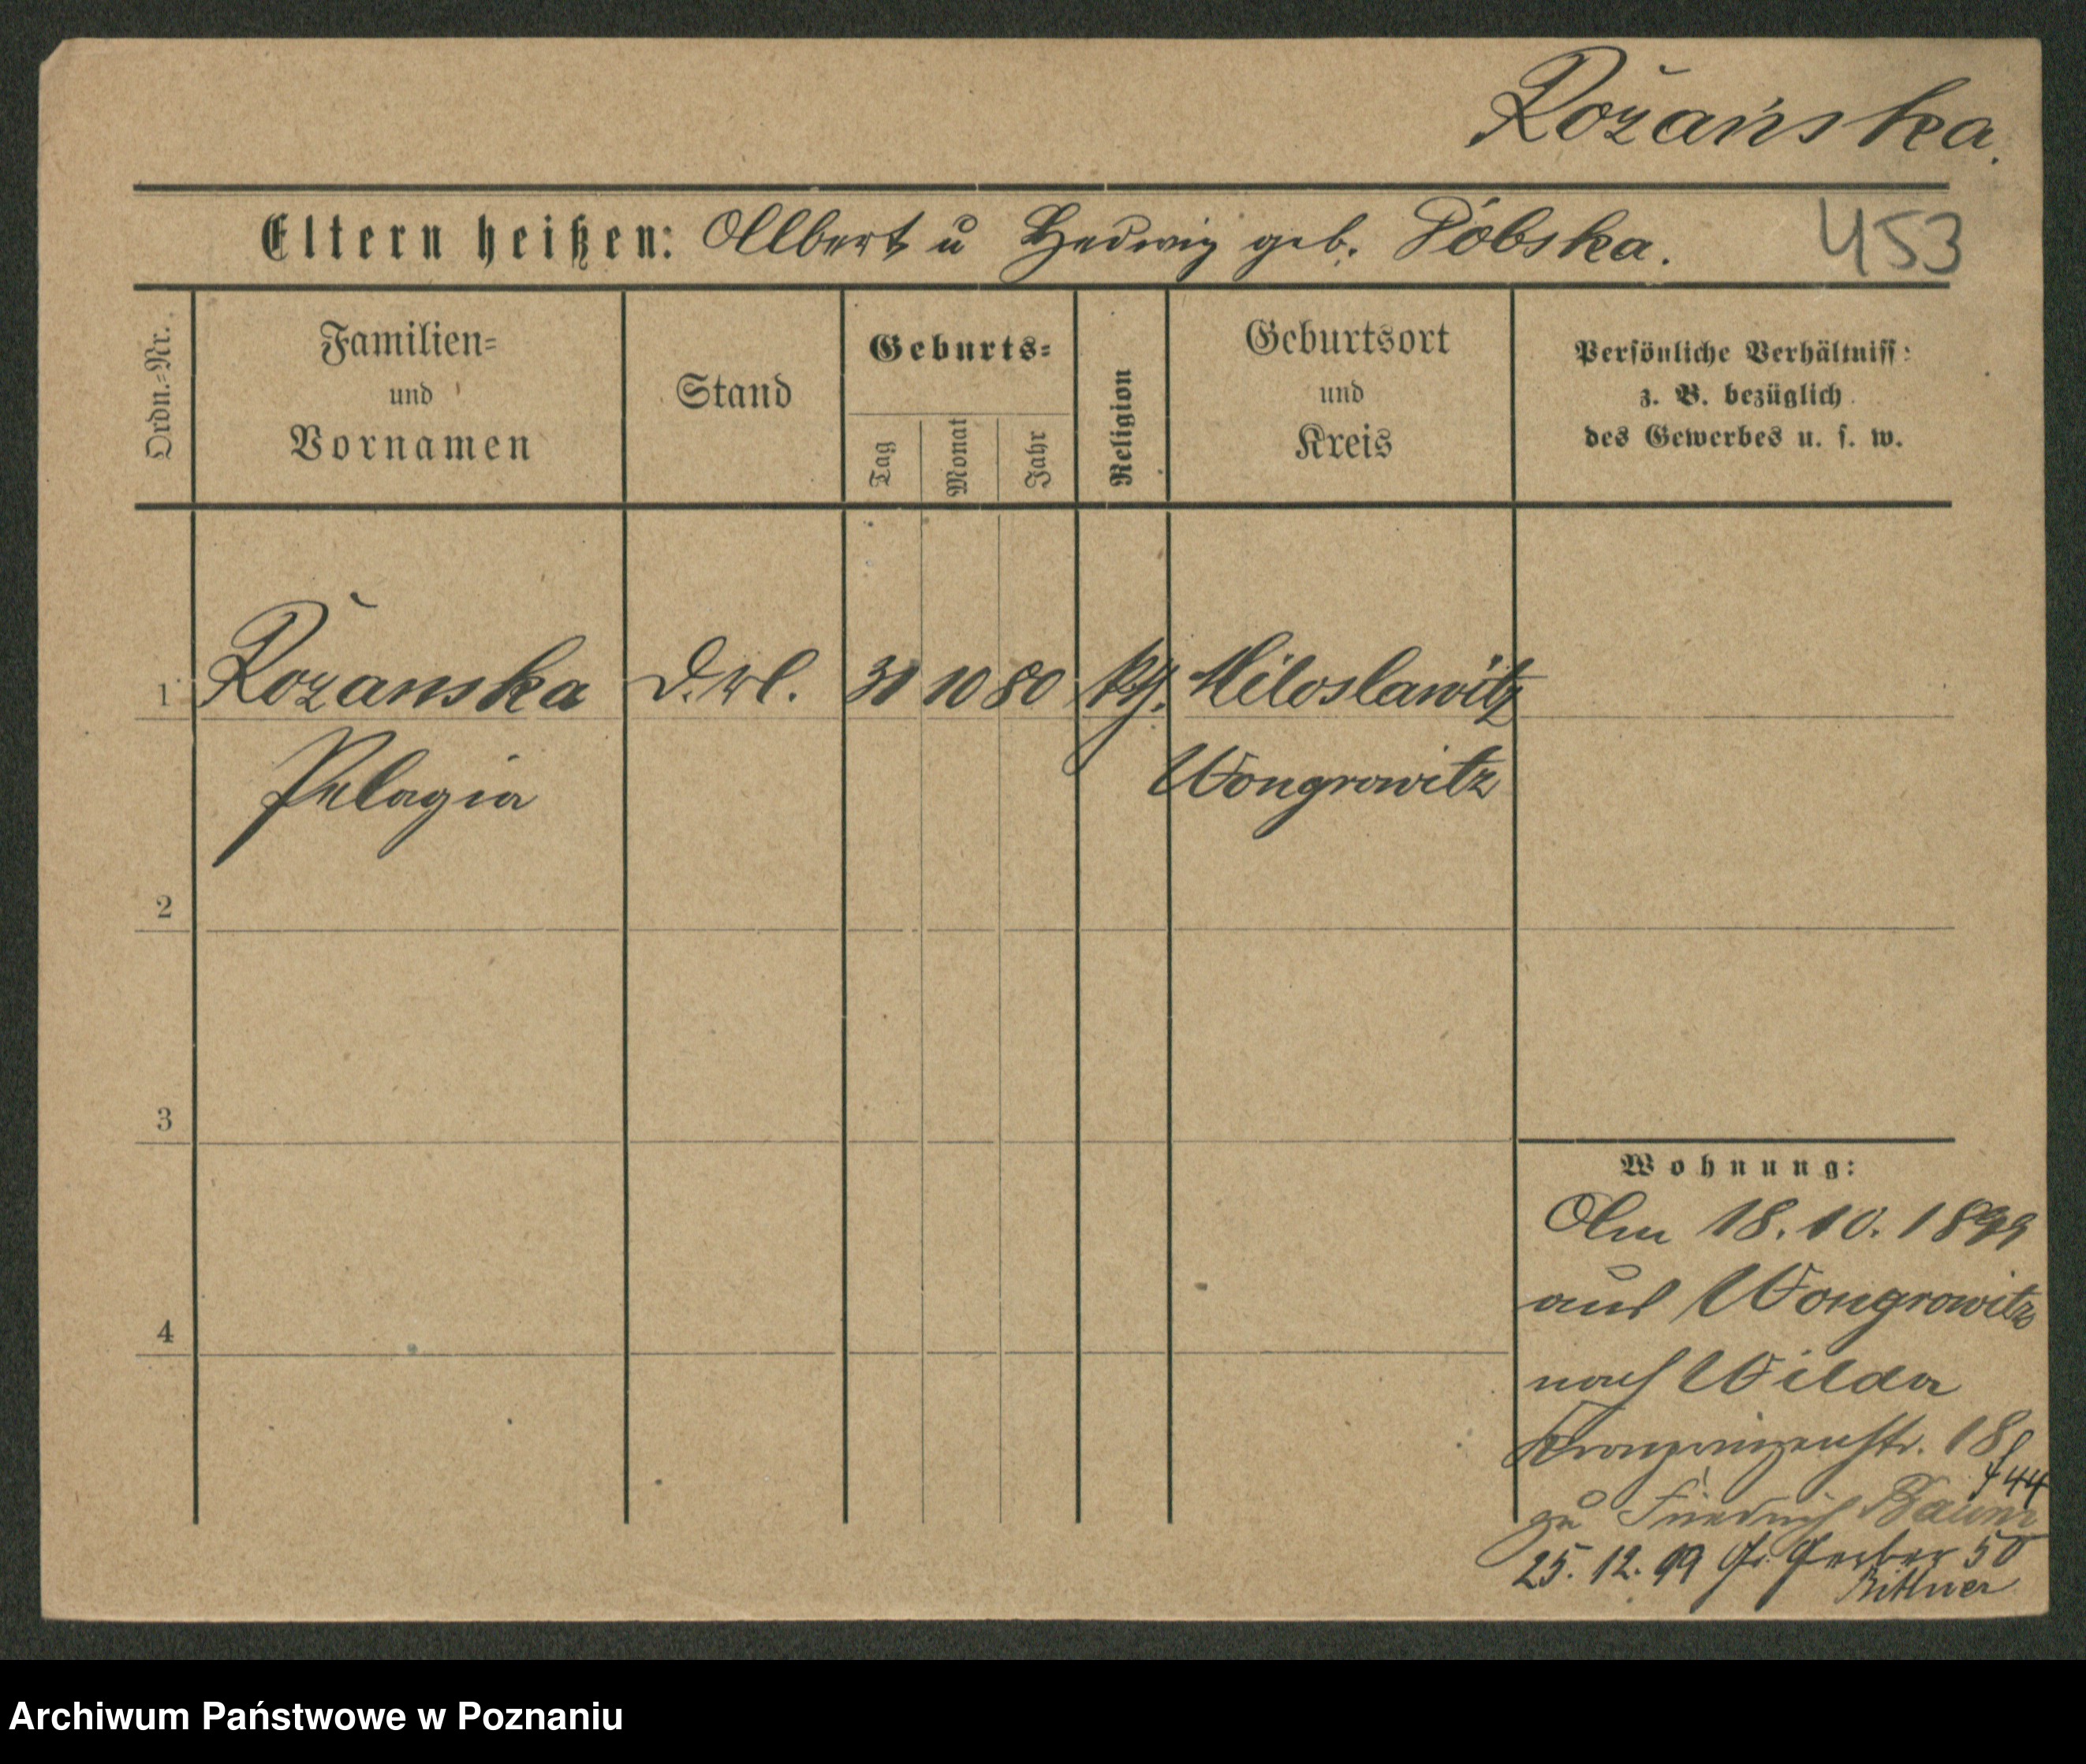 Rożańska.
Eltern heißen: Albert u Hedwig geb. Pobska. 453
Ordn.-Nr.
Familien- und Vornamen
Stand
Geburts-
Tag Monat Jahr
Religion
Geburtsort und Kreis
Persönliche Verhältniss
z. B. bezüglich
des Gewerbes u. s. w.
1 Rożanska 31 10 80 kth. Miloslawitz
Pelagia Wongrowitz
2
3
4
Wohnung:
Am 18.10.1899
aus Wongrowitz
nach Wilda
Kronprinzenstr. 18
f 44
zu Friedrich Baum
25.12.99 Gr. Gerber 50
Bittner
Archiwum Państwowe w Poznaniu